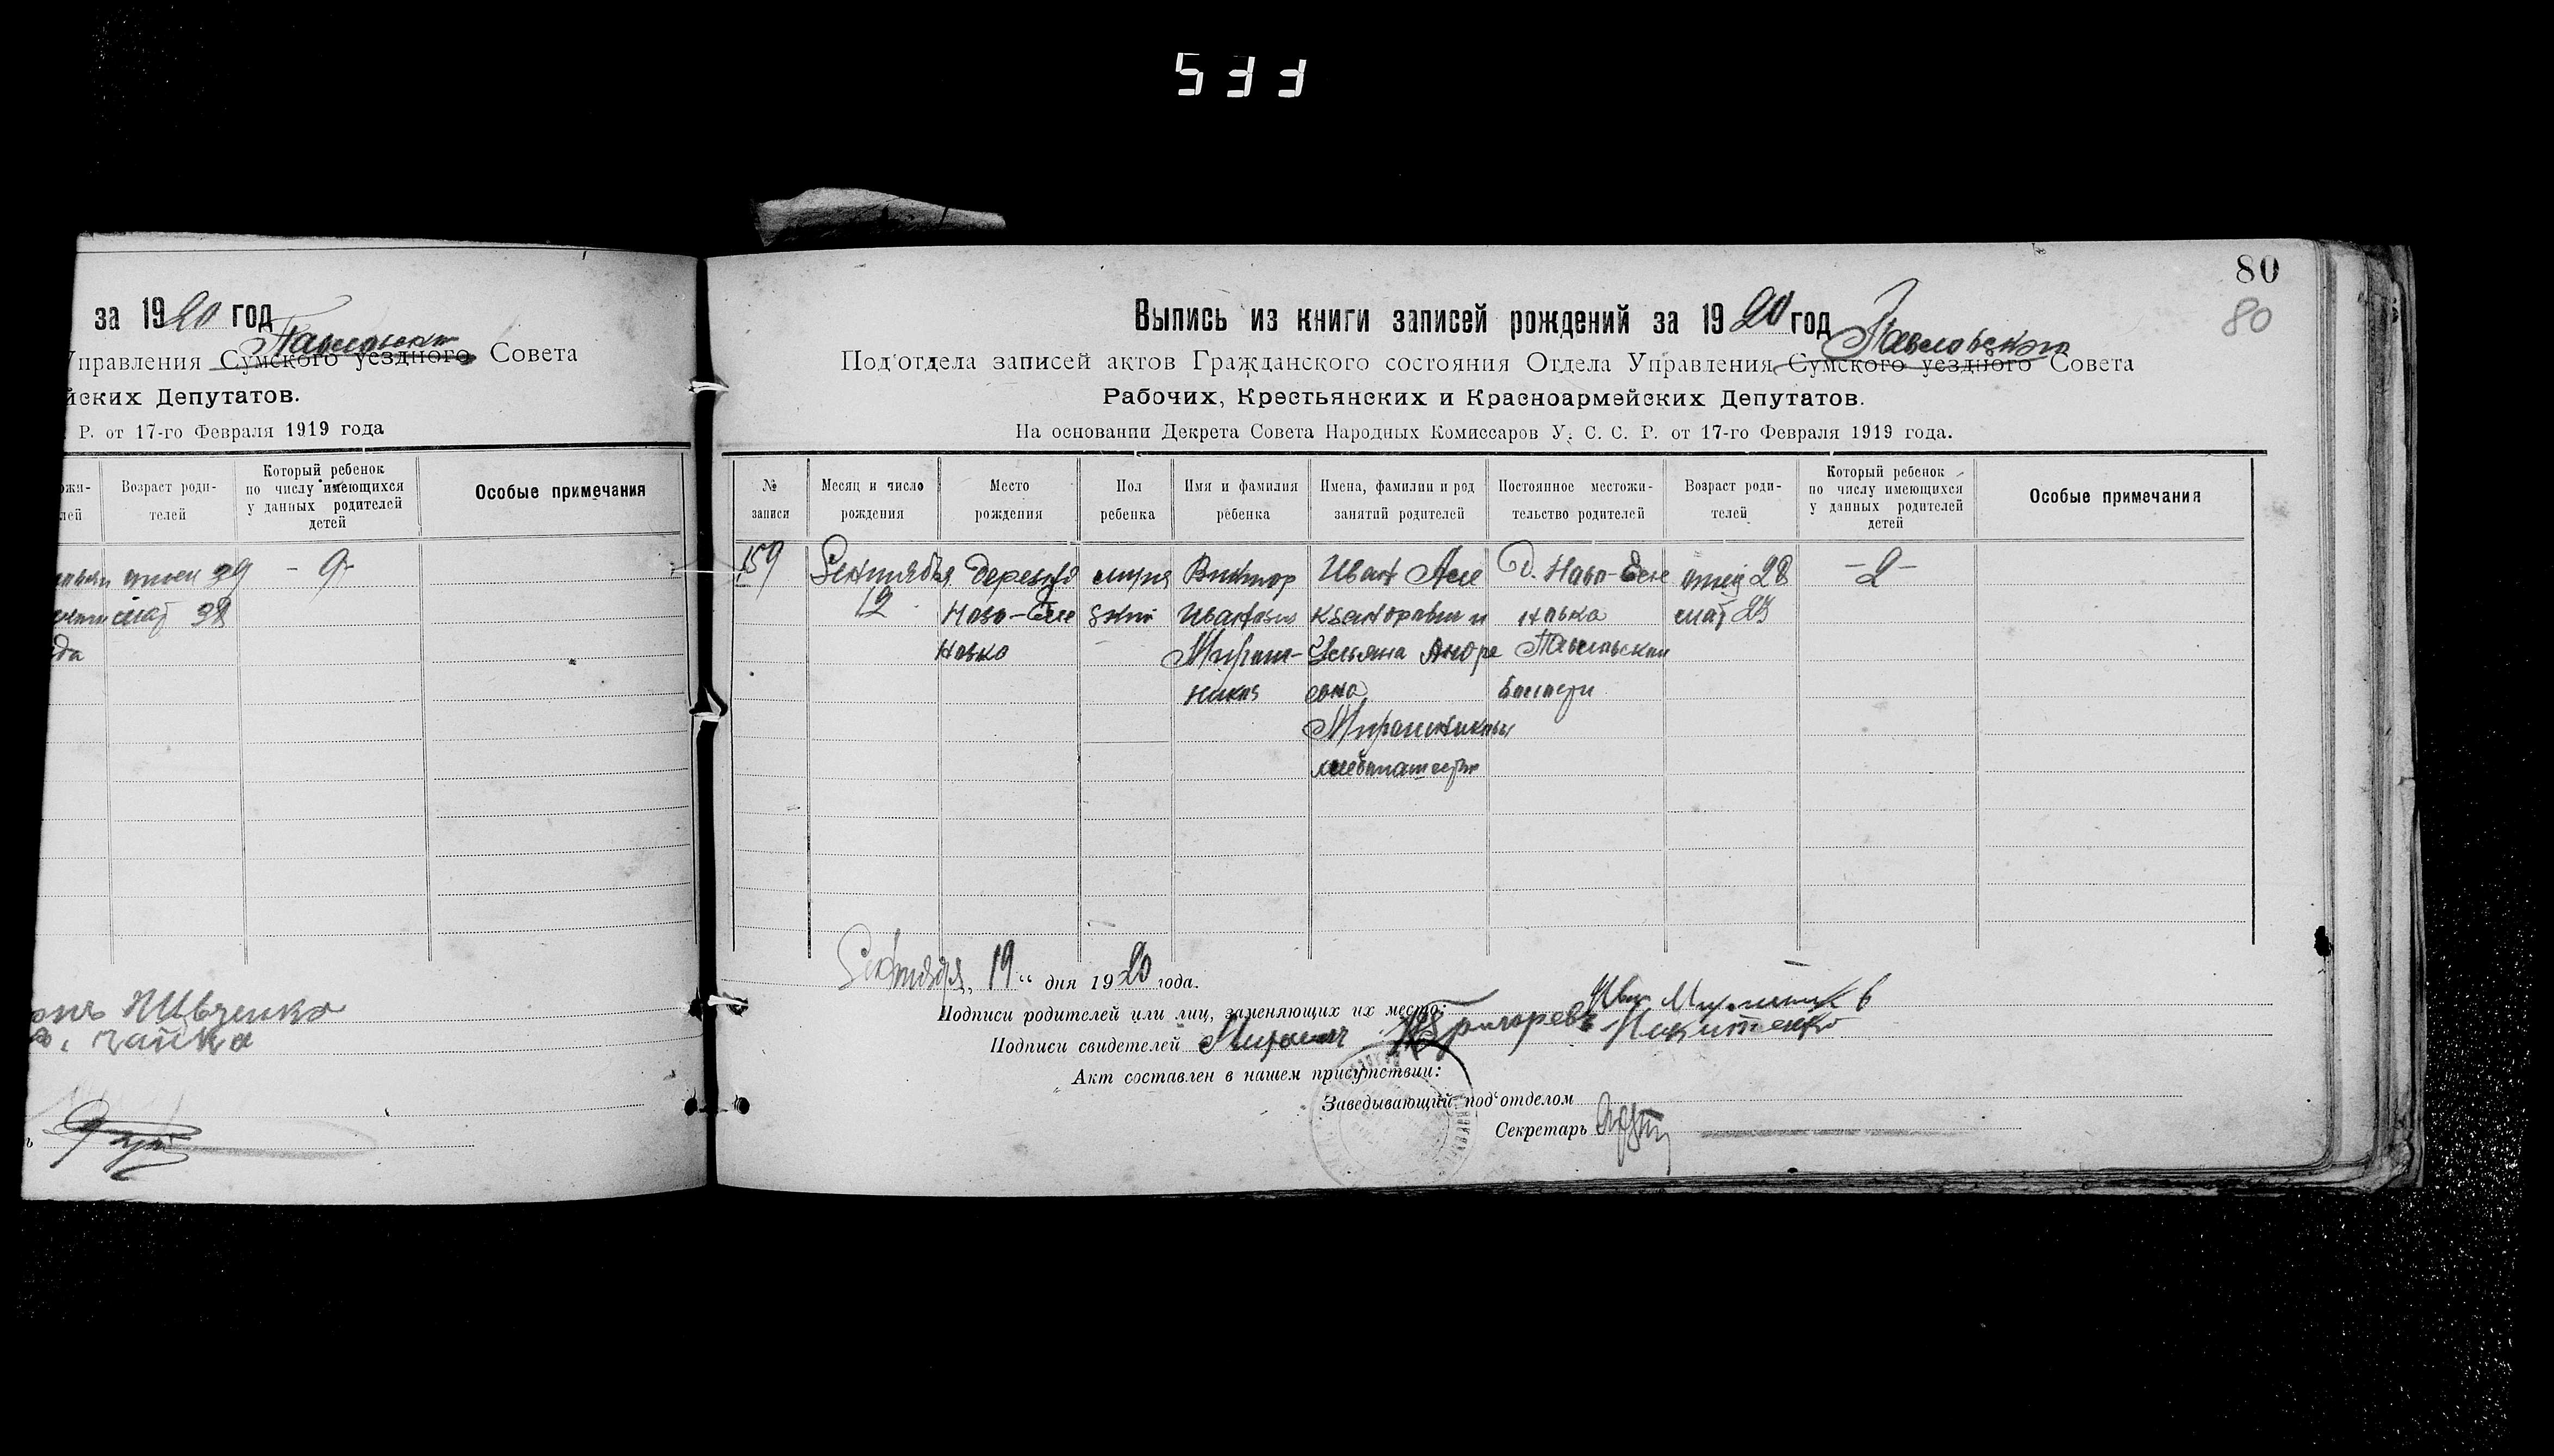 533
за 1920 год
Управления Сумского уездного Совета
йских Депутатов.
Р. от 17-го Февраля 1919 года
Возраст роди-
телей
Который ребенок
по числу имеющихся
у данных родителей
детей
Особые примечания
39 - 9-
мат 38
да
Шевченко
Зайка
80
80
Выпись из книги записей рождений за 1920 год
Павловского
Под'отдела записей актов Гражданского состояния Отдела Управления Сумского уездного Совета
Рабочих, Крестьянских и Красноармейских Депутатов.
На основании Декрета Совета Народных Комиссаров У. С. С. Р. от 17-го Февраля 1919 года.
№
записи
Месяц и число
рождения
Место
рождения
Пол
ребенка
Имя и фамилия
ребенка
Имена, фамилии и род
занятий родителей
Постоянное местожи-
тельство родителей
Возраст роди-
телей
Который ребенок
по числу имеющихся
у данных родителей
детей
Особые примечания
159
Сентября
12
деревня
Ново-Есе
новка
мужс
кий
Виктор
Иванович
Мирош-
ников
Иван Але
ксандрович и
Ульяна Андре
евна
Мирошниковы
хлебопашество
д. Ново-Есе
новка
Павловской
волости
отец 28
мат 23
-2-
Сентября, 19 " дня 1920 года.
Подписи родителей или лиц, заменяющих их место:
Подписи свидетелей
Никитенко
Акт составлен в нашем присутствии:
Заведывающий под'отделом
Секретарь